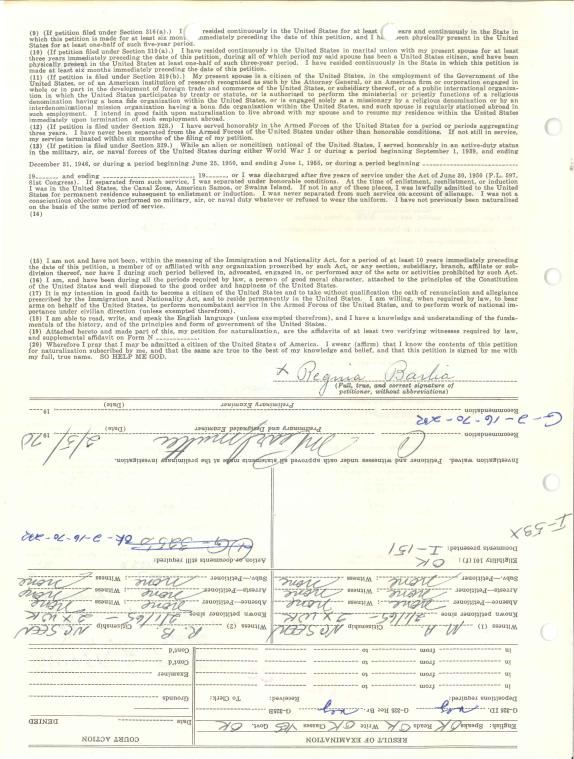 (9) (If petition filed under Section 316(a).) I resided continuously in the United States for at least ears and continuously in the State in
which this petition is made for at least six mon mmediately preceding the date of this petition, and I ha been physically present in the United
States for at least one-half of such five-year period.
(10) (If petition filed under Section 319(a).) I have resided continuously in the United States in marital union with my present spouse for at least
three years immediately preceding the date of this petition, during all of which period my said spouse has been a United States citizen, and have been
physically present in the United States at least one-half of such three-year period. I have resided continuously in the State in which this petition is
made at least six months immediately preceding the date of this petition.
(11) (If petition is filed under Section 319(b).) My present spouse is a citizen of the United States, in the employment of the Government of the
United States, or of an American institution of research recognized as such by the Attorney General, or an American firm or corporation engaged in
whole or in part in the development of foreign trade and commerce of the United States, or subsidiary thereof, or of a public international organiza-
tion in which the United States participates by treaty or statute, or is authorized to perform the ministerial or priestly functions of a religious
denomination having a bona fide organization within the United States, or is engaged solely as a missionary by a religious denomination or by an
interdenominational mission organization having a bona fide organization within the United States, and such spouse is regularly stationed abroad in
such employment. I intend in good faith upon naturalization to live abroad with my spouse and to resume my residence within the United States
immediately upon termination of such employment abroad.
(12) (If petition filed under Section 328.) I have served honorably in the Armed Forces of the United States for a period or periods aggregating
three years. I have never been separated from the Armed Forces of the United States under other than honorable conditions. If not still in service,
my service terminated within six months of the filing of my petition.
(13) (If petition filed under Section 329.) While an alien or noncitizen national of the United States, I served honorably in an active-duty status
in the military, air, or naval forces of the United States during either World War I or during a period beginning September 1, 1939, and ending
December 31, 1946, or during a period beginning June 25, 1950, and ending July 1, 1955, or during a period beginning
19 and ending 19 or I was discharged after five years of service under the Act of June 30, 1950 (P.L. 597,
81st Congress). If separated from such service, I was separated under honorable conditions. At the time of enlistment, reenlistment, or induction
I was in the United States, the Canal Zone, American Samoa, or Swains Island. If not in any of these places, I was lawfully admitted to the United
States for permanent residence subsequent to enlistment or induction. I was never separated from such service on account of alienage. I was not a
conscientious objector who performed no military, air, or naval duty whatever or refused to wear the uniform. I have not previously been naturalized
on the basis of the same period of service.
(14)
(15) I am not and have not been, within the meaning of the Immigration and Nationality Act, for a period of at least 10 years immediately preceding
the date of this petition, a member of or affiliated with any organization proscribed by such Act, or any section, subsidiary, branch, affiliate or sub-
division thereof, nor have I during such period believed in, advocated, engaged in, or performed any of the acts or activities prohibited by such Act.
(16) I am, and have been during all the periods required by law, a person of good moral character, attached to the principles of the Constitution
of the United States and well disposed to the good order and happiness of the United States.
(17) It is my intention in good faith to become a citizen of the United States and to take without qualification the oath of renunciation and allegiance
prescribed by the Immigration and Nationality Act, and to reside permanently in the United States. I am willing, when required by law, to bear
arms on behalf of the United States, to perform noncombatant service in the Armed Forces of the United States, and to perform work of national im-
portance under civilian direction (unless exempted therefrom).
(18) I am able to read, write, and speak the English language (unless exempted therefrom), and I have a knowledge and understanding of the funda-
mentals of the history, and of the principles and form of government of the United States.
(19) Attached hereto and made part of this, my petition for naturalization, are the affidavits of at least two verifying witnesses required by law,
and supplemental affidavit on Form N
(20) Wherefore I pray that I may be admitted a citizen of the United States of America. I swear (affirm) that I know the contents of this petition
for naturalization subscribed by me, and that the same are true to the best of my knowledge and belief, and that this petition is signed by me with
my full, true name. SO HELP ME GOD.
x Regina Barlia
(Full, true, and correct signature of
petitioner, without abbreviations)
RESULT OF EXAMINATION
COURT ACTION
English: Speaks OK Reads OK Write OK Classes YES Govt. OK
Date DENIED
G-325 ID. G-325 Rec Br. G-325B
Grounds
Depositions required: Received: To Clerk:
in from to
Examiner
in from to
Cont'd
in from to
Cont'd
in from to
Witness (1) M A Citizenship NO SEEN Witness (2) R. B Citizenship NO SEEN
Known petitioner since 2/1/65 - 2 X WK Known petitioner since 2/1/65 - 2 X WK
Absence—Petitioner none Witness none Absence—Petitioner none Witness none
Arrests—Petitioner none Witness none Arrests—Petitioner none Witness none
Subv.—Petitioner none Witness none Subv.—Petitioner none Witness none
Eligibility 101 (f): OK
Action, on documents still required:
Documents presented: I-151
G-325 OK 2-16-70
I-53X
Investigation waived. Petitioner and witnesses under oath approved all statements made at the preliminary investigation.
2/5/ 1970
Recommendation Preliminary Examiner and Designated Examiner (Date)
G-2-16-70
19
Recommendation Preliminary Examiner (Date)